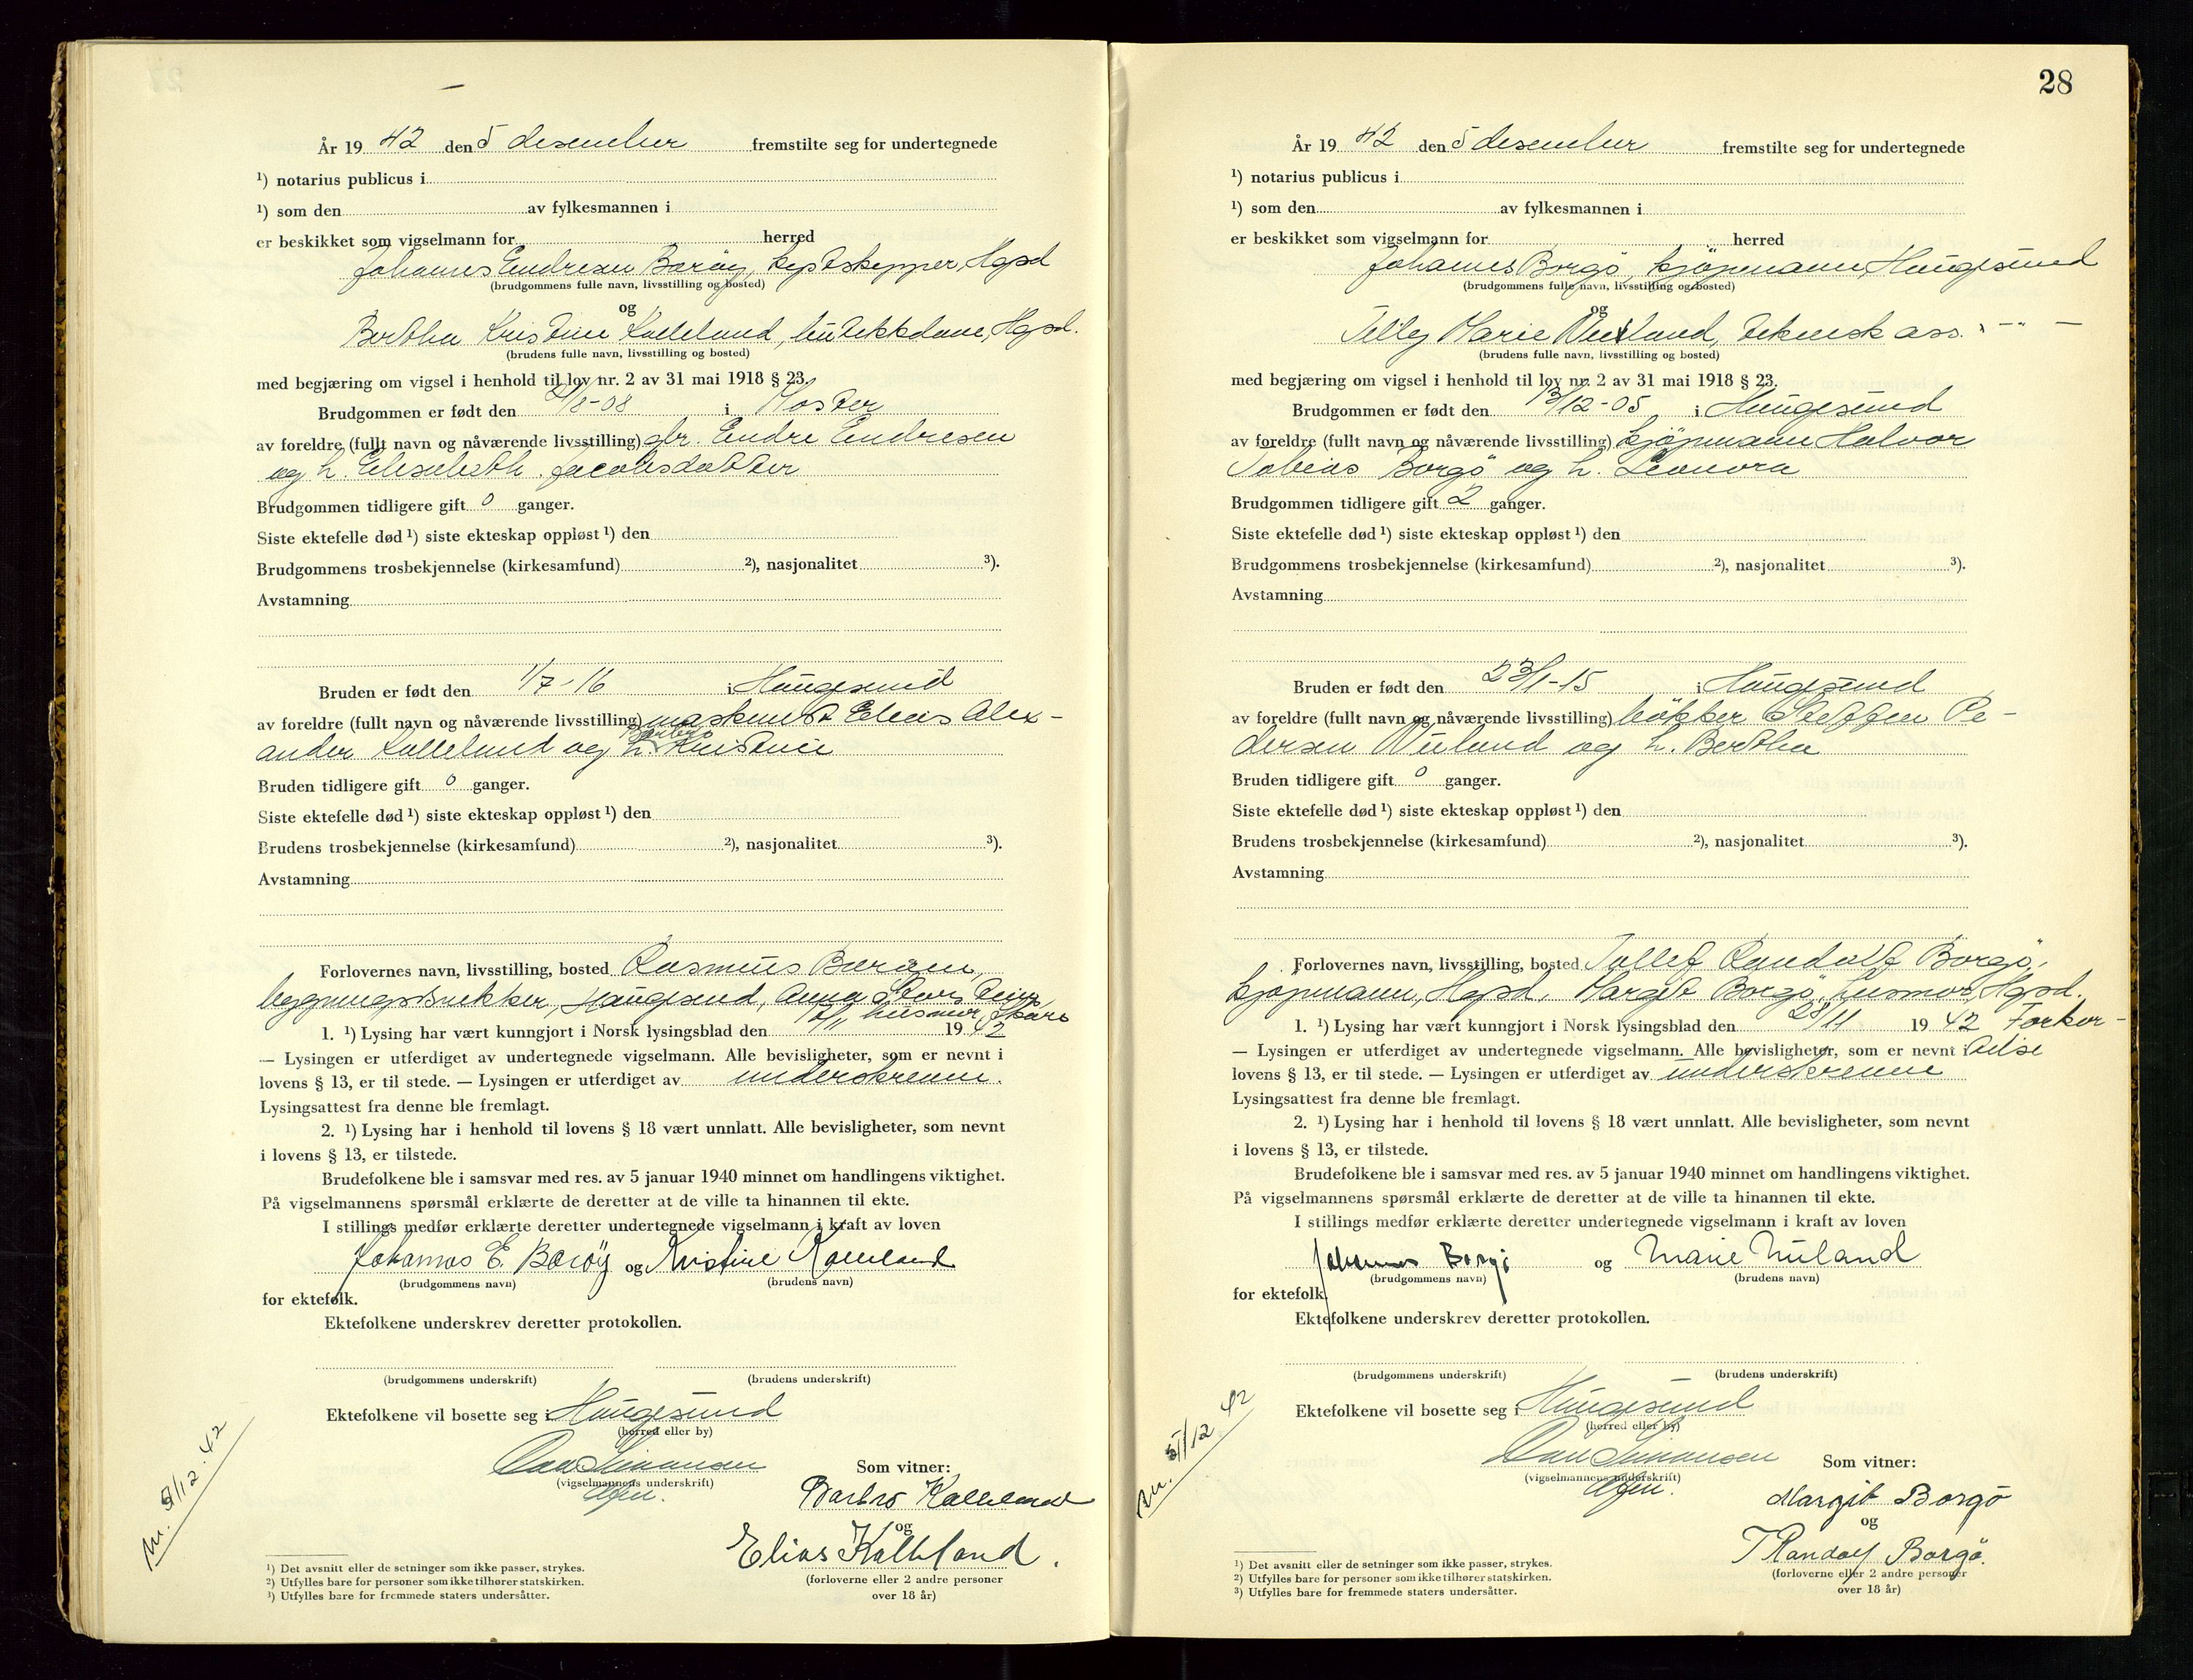 År 19 42 den 5 desember fremstilte seg for undertegnede
¹) notarius publicus i
¹) som den av fylkesmannen i
er beskikket som vigselmann for herred
Johannes Endresen Borøy, Hgsd
(brudgommens fulle navn, livsstilling og bosted)
og
Bertha Kristine Kalleland, butikkdame, Hgsd.
(brudens fulle navn, livsstilling og bosted)
med begjæring om vigsel i henhold til lov nr. 2 av 31 mai 1918 § 23.
Brudgommen er født den /8-08 i Moster
av foreldre (fullt navn og nåværende livsstilling) gbr. Endre Endresen
og h. Elisabeth Jacobsdatter
Brudgommen tidligere gift 0 ganger.
Siste ektefelle død ¹) siste ekteskap oppløst ¹) den
Brudgommens trosbekjennelse (kirkesamfund) ²), nasjonalitet ³).
Avstamning
Bruden er født den 1/7-16 i Haugesund
av foreldre (fullt navn og nåværende livsstilling) maskinist Elias Alex-
ander Kalleland og h. Barbro Kristine
Bruden tidligere gift 0 ganger.
Siste ektefelle død ¹) siste ekteskap oppløst ¹) den
Brudens trosbekjennelse (kirkesamfund) ²), nasjonalitet ³).
Avstamning
Forlovernes navn, livsstilling, bosted Rasmus
Haugesund, Anna
husmor, Skåre
1. ¹) Lysing har vært kunngjort i Norsk lysingsblad den /11 19 42
— Lysingen er utferdiget av undertegnede vigselmann. Alle bevisligheter, som er nevnt i
lovens § 13, er til stede. — Lysingen er utferdiget av underskrevne.
Lysingsattest fra denne ble fremlagt.
2. ¹) Lysing har i henhold til lovens § 18 vært unnlatt. Alle bevisligheter, som nevnt
i lovens § 13, er tilstede.
Brudefolkene ble i samsvar med res. av 5 januar 1940 minnet om handlingens viktighet.
På vigselmannens spørsmål erklærte de deretter at de ville ta hinannen til ekte.
I stillings medfør erklærte deretter undertegnede vigselmann i kraft av loven
Johannes E. Borøy og Kristine Kalleland
(brudgommens navn) (brudens navn)
for ektefolk.
Ektefolkene underskrev deretter protokollen.
(brudgommens underskrift) (brudens underskrift)
Ektefolkene vil bosette seg i Haugesund
(herred eller by)
Simonsen
(vigselmannens underskrift)
Som vitner:
Barbro Kalleland
og
Elias Kalleland.
(forloverne eller 2 andre personer
over 18 år)
m. 5/12.42
¹) Det avsnitt eller de setninger som ikke passer, strykes.
²) Utfylles bare for personer som ikke tilhører statskirken.
³) Utfylles bare for fremmede staters undersåtter.
28
År 19 42 den 5 desember fremstilte seg for undertegnede
¹) notarius publicus i
¹) som den av fylkesmannen i
er beskikket som vigselmann for herred
Johannes Borgø, kjøpmann, Haugesund
(brudgommens fulle navn, livsstilling og bosted)
og
Marie Niland, teknisk ass. -"-
(brudens fulle navn, livsstilling og bosted)
med begjæring om vigsel i henhold til lov nr. 2 av 31 mai 1918 § 23.
Brudgommen er født den 13/12-05 i Haugesund
av foreldre (fullt navn og nåværende livsstilling) kjøpmann Halvor
Tobias Borgø og h. Leonora
Brudgommen tidligere gift 2 ganger.
Siste ektefelle død ¹) siste ekteskap oppløst ¹) den
Brudgommens trosbekjennelse (kirkesamfund) ²), nasjonalitet ³).
Avstamning
Bruden er født den 23/1-15 i Haugesund
av foreldre (fullt navn og nåværende livsstilling) bøkker Steffen Pe-
dersen Niland og h. Bertha
Bruden tidligere gift 0 ganger.
Siste ektefelle død ¹) siste ekteskap oppløst ¹) den
Brudens trosbekjennelse (kirkesamfund) ²), nasjonalitet ³).
Avstamning
Forlovernes navn, livsstilling, bosted Tollef Randolf Borgø,
kjøpmann, Hgsd, Margit Borgø, husmor, Hgsd.
1. ¹) Lysing har vært kunngjort i Norsk lysingsblad den 28/11 19 42
— Lysingen er utferdiget av undertegnede vigselmann. Alle bevisligheter, som er nevnt i
lovens § 13, er til stede. — Lysingen er utferdiget av underskrevne
Lysingsattest fra denne ble fremlagt.
2. ¹) Lysing har i henhold til lovens § 18 vært unnlatt. Alle bevisligheter, som nevnt
i lovens § 13, er tilstede.
Brudefolkene ble i samsvar med res. av 5 januar 1940 minnet om handlingens viktighet.
På vigselmannens spørsmål erklærte de deretter at de ville ta hinannen til ekte.
I stillings medfør erklærte deretter undertegnede vigselmann i kraft av loven
Johannes Borgø og Marie Niland
(brudgommens navn) (brudens navn)
for ektefolk.
Ektefolkene underskrev deretter protokollen.
(brudgommens underskrift) (brudens underskrift)
Ektefolkene vil bosette seg i Haugesund
(herred eller by)
Simonsen
(vigselmannens underskrift)
Som vitner:
Margit Borgø
og
T Randolf Borgø.
(forloverne eller 2 andre personer
over 18 år)
m. 5/12 42
¹) Det avsnitt eller de setninger som ikke passer, strykes.
²) Utfylles bare for personer som ikke tilhører statskirken.
³) Utfylles bare for fremmede staters undersåtter.